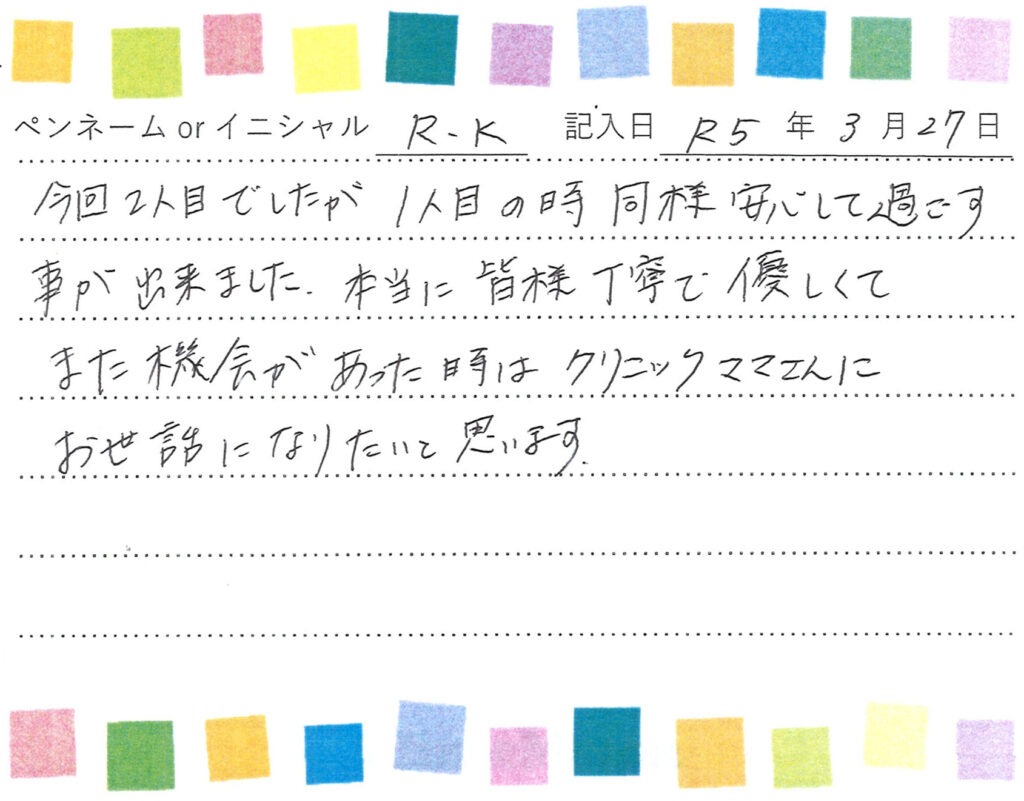 ペンネーム or イニシャル R-K 記入日 R5 年 3 月 27 日
今回2人目でしたが 1人目の時 同様 安心して過ごす
事が出来ました. 本当に 皆様 丁寧で 優しくて
また機会が あった時は クリニックママさんに
お世話になりたいと思います.